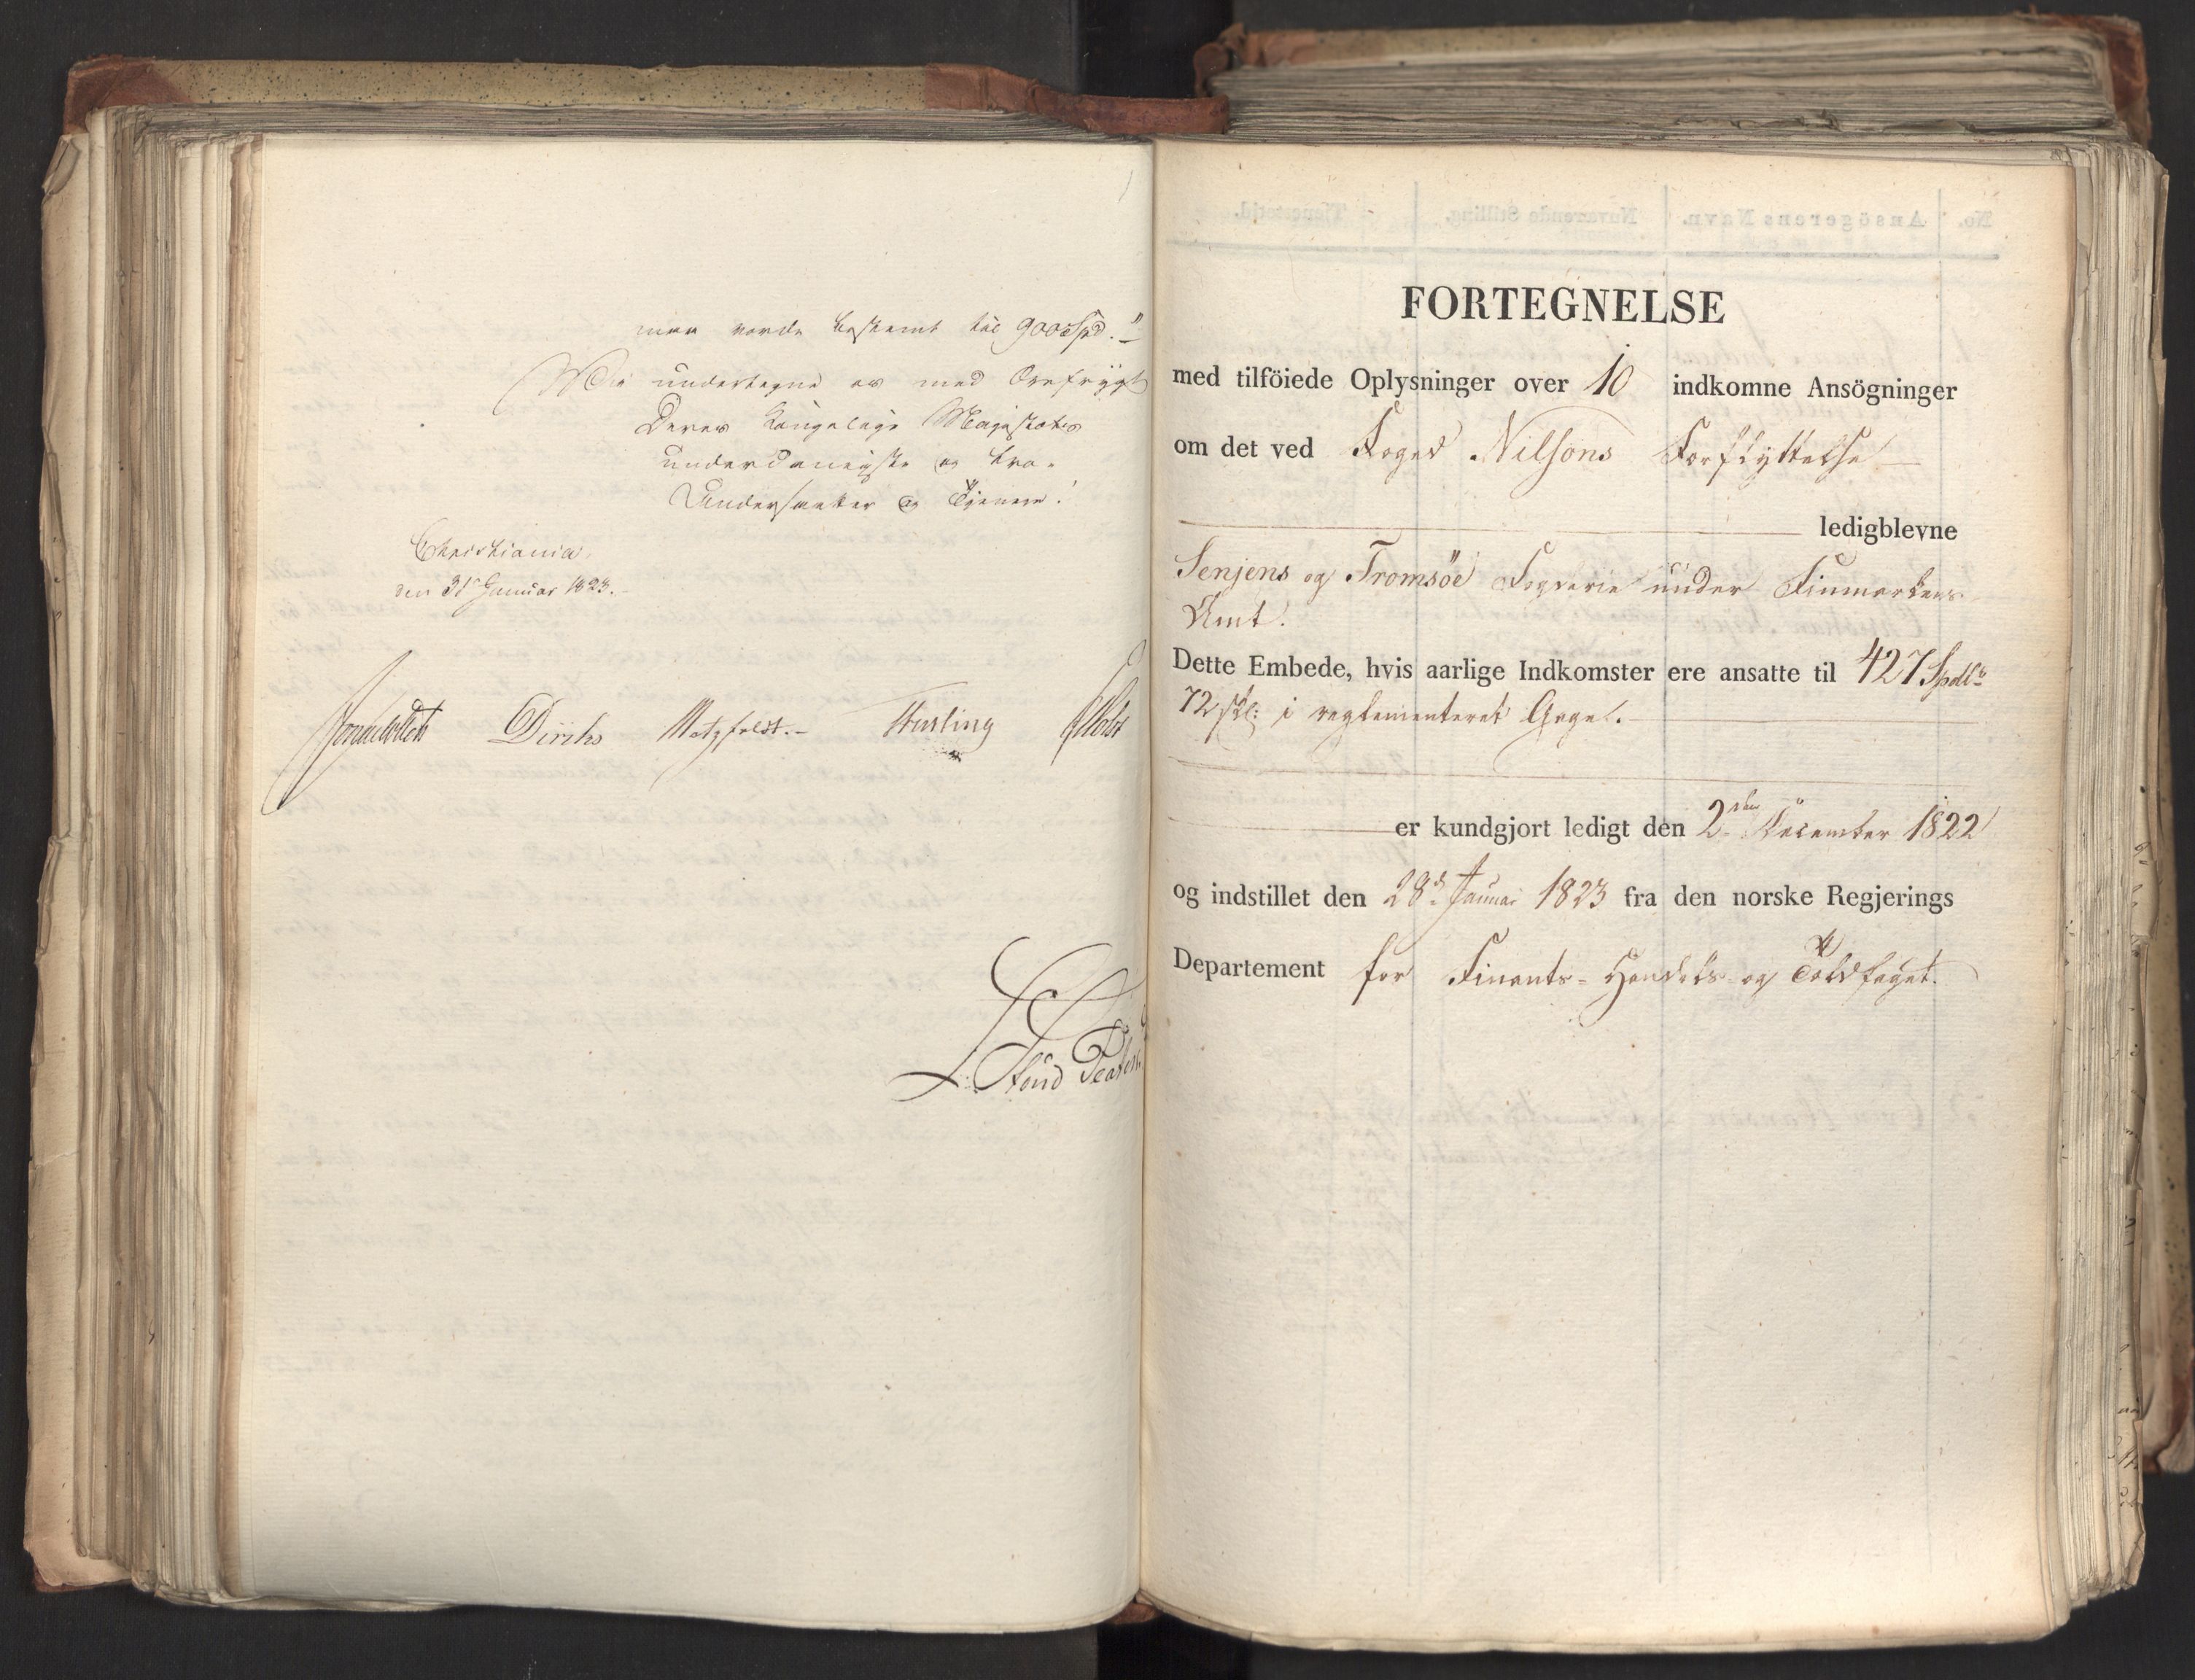 maa vorde bestemt til 900 Spd."
Vi undertegne os med Ærefrygt
Deres Kongelige Majestæts
underdanigste og tro-
Undersaatter og Tjenere!
Christiania
den 31 Januar 1823.
Sommerhielm Diriks Motzfeldt. Holst
FORTEGNELSE
med tilföiede Oplysninger over 10 indkomne Ansögninger
om det ved Foged Nilsons Forflyttelse
ledigblevne
Senjens og Tromsöe Fogderie under Finmarkens
Amt.
Dette Embede, hvis aarlige Indkomster ere ansatte til 427 Spdlr
72 skl: i reglementeret Gage.
er kundgjort ledigt den 2den December 1822
og indstillet den 28d Januar 1823 fra den norske Regjerings
Departement for Finants- Handels- og Toldfaget.